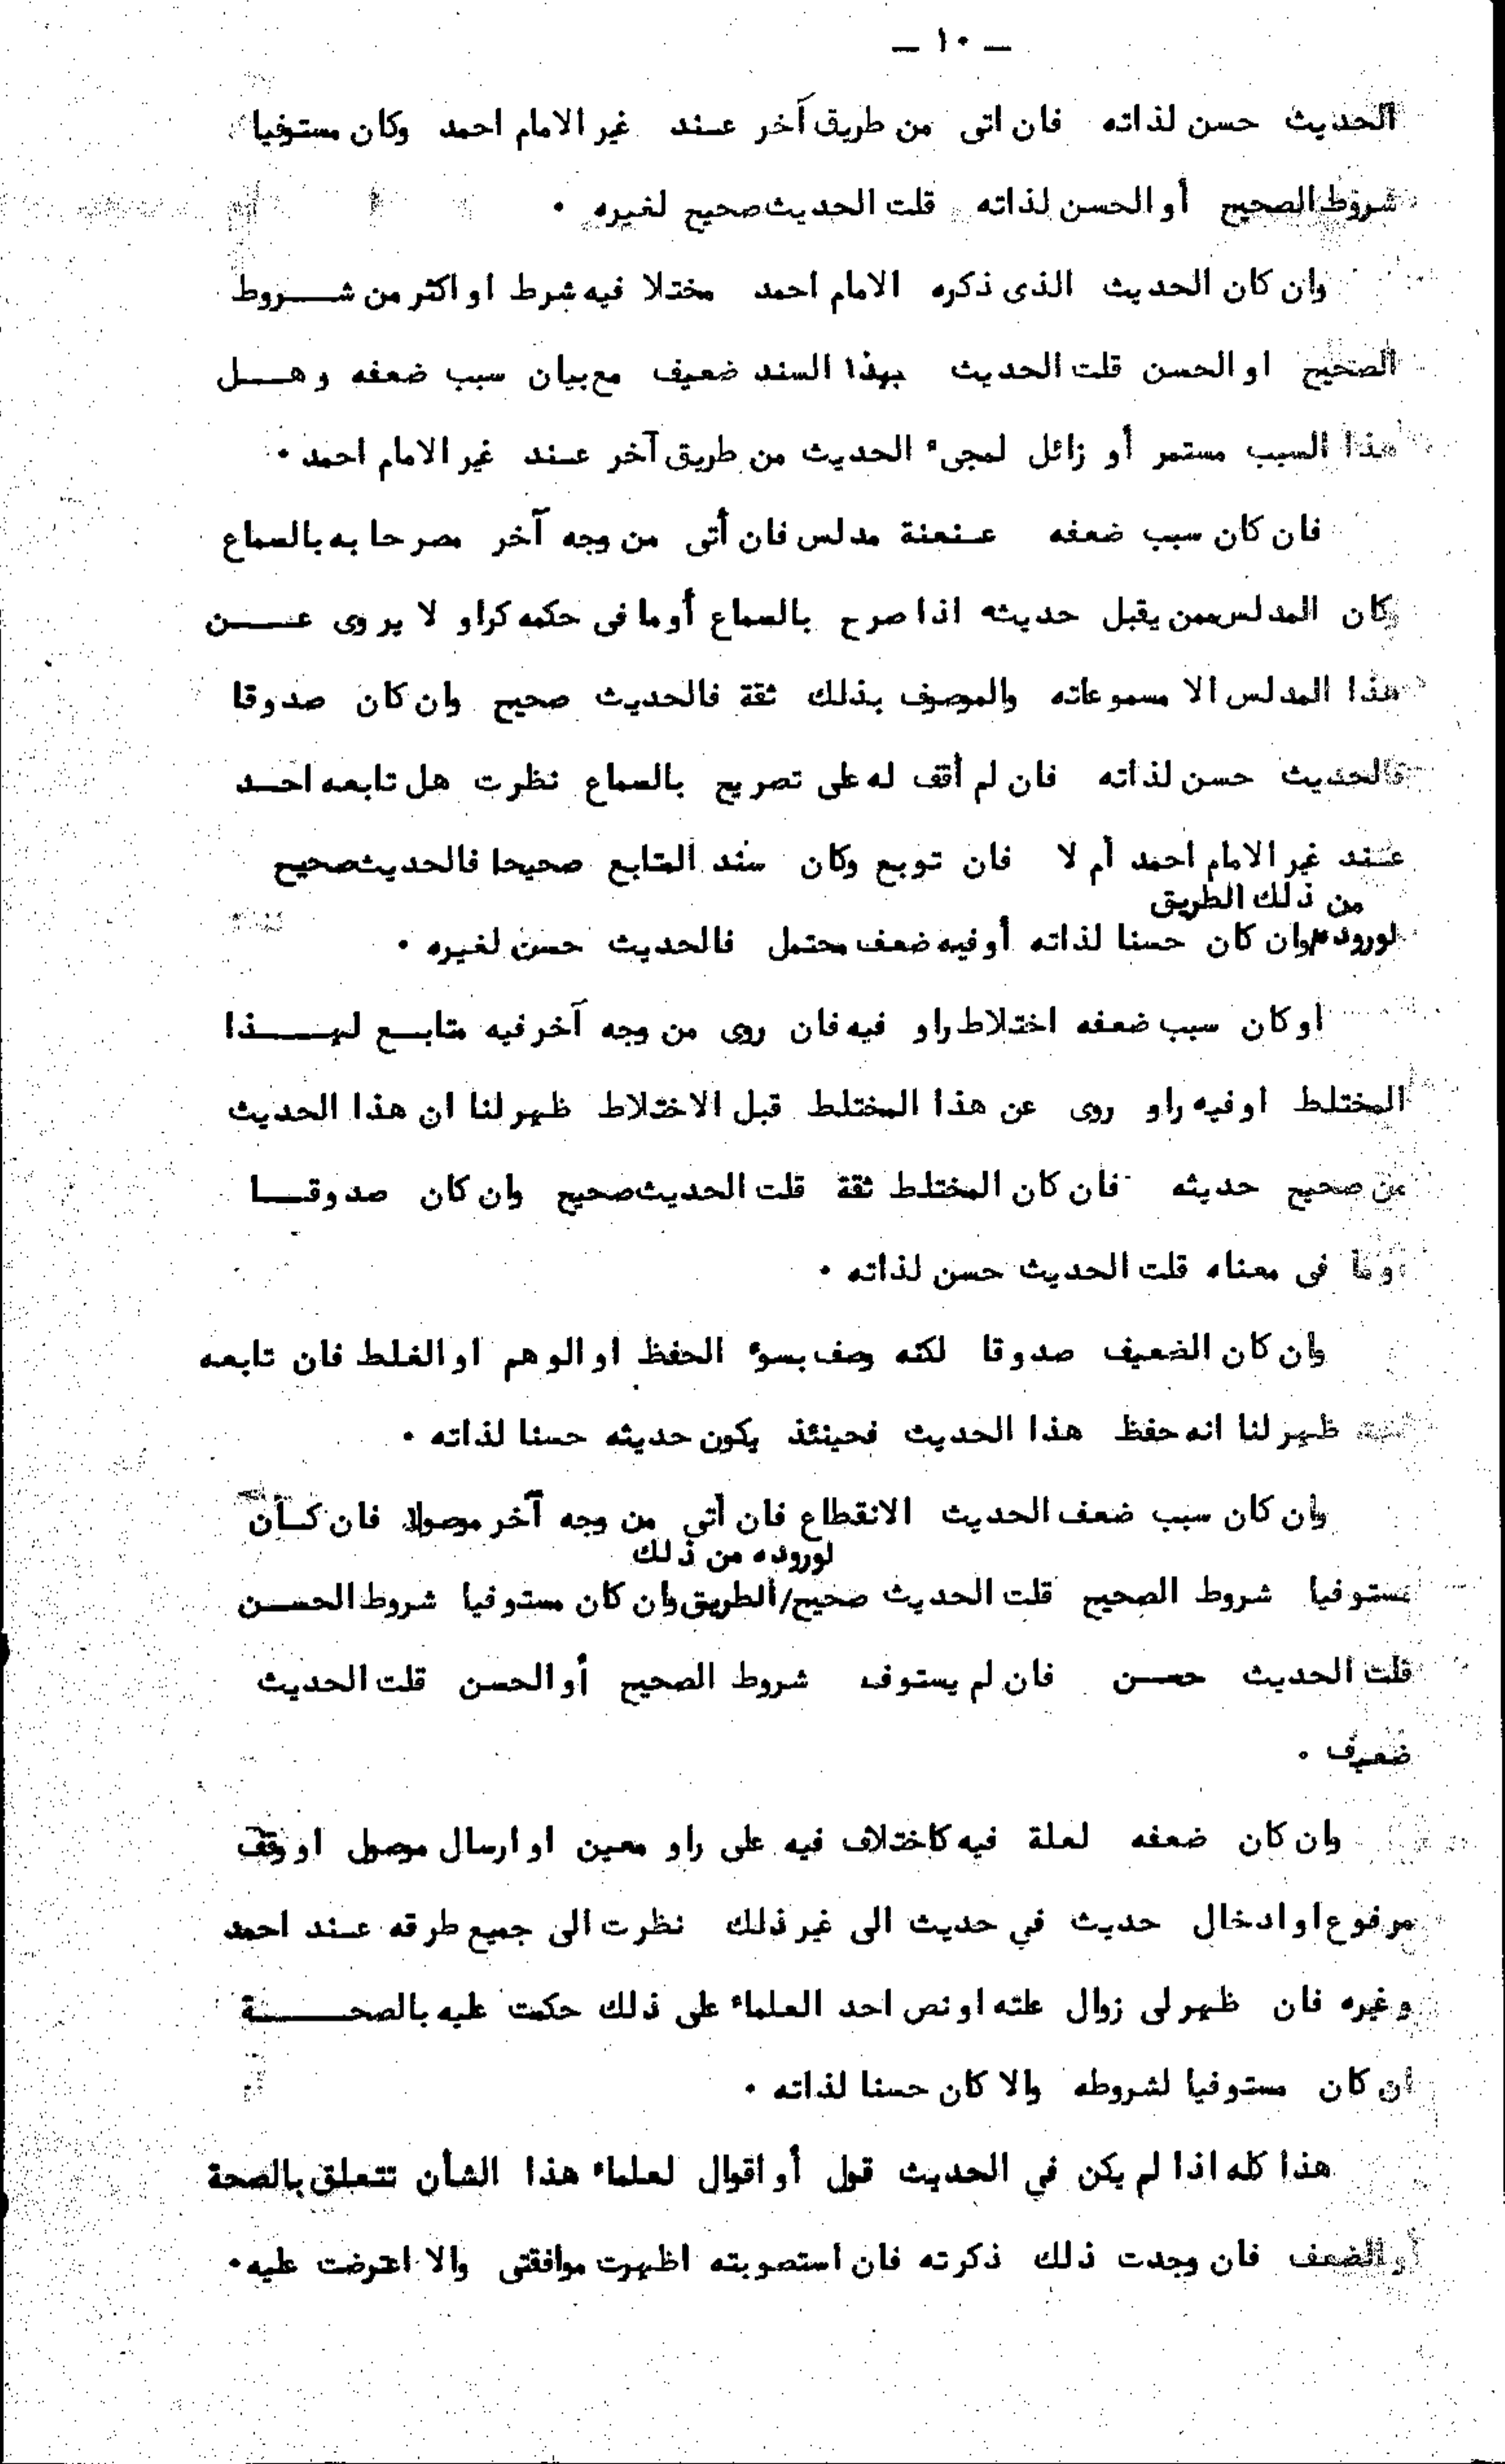 — ١٠ —
الحديث حسن لذاته فان اتى من طريق آخر عند غير الامام احمد وكان مستوفيا
شروط الصحيح أو الحسن لذاته قلت الحديث صحيح لغيره .
وان كان الحديث الذى ذكره الامام احمد مختلا فيه شرط او اكثر من شروط
الصحيح او الحسن قلت الحديث بهذا السند ضعيف مع بيان سبب ضعفه وهل
هذا السبب مستمر أو زائل لمجىء الحديث من طريق آخر عند غير الامام احمد .
فان كان سبب ضعفه عنعنة مدلس فان أتى من وجه آخر مصرحا به بالسماع
وكان المدلس ممن يقبل حديثه اذا صرح بالسماع أو ما فى حكمه كراو لا يروى عن
هذا المدلس الا مسموعاته والموصوف بذلك ثقة فالحديث صحيح وان كان صدوقا
فالحديث حسن لذاته فان لم أقف له على تصريح بالسماع نظرت هل تابعه احد
عند غير الامام احمد أم لا فان توبع وكان سند المتابع صحيحا فالحديث صحيح
من ذلك الطريق
لوروده وان كان حسنا لذاته أو فيه ضعف محتمل فالحديث حسن لغيره .
او كان سبب ضعفه اختلاط راو فيه فان روى من وجه آخر فيه متابع لهذا
المختلط او فيه راو روى عن هذا المختلط قبل الاختلاط ظهر لنا ان هذا الحديث
من صحيح حديثه فان كان المختلط ثقة قلت الحديث صحيح وان كان صدوقا
او ما فى معناه قلت الحديث حسن لذاته .
وان كان الضعيف صدوقا لكنه وصف بسوء الحفظ او الوهم او الغلط فان تابعه
ظهر لنا انه حفظ هذا الحديث فحينئذ يكون حديثه حسنا لذاته .
وان كان سبب ضعف الحديث الانقطاع فان أتى من وجه آخر موصولا فان كان
لوروده من ذلك
مستوفيا شروط الصحيح قلت الحديث صحيح/الطريق وان كان مستوفيا شروط الحسن
قلت الحديث حسن فان لم يستوف شروط الصحيح أو الحسن قلت الحديث
ضعيف .
وان كان ضعفه لعلة فيه كاختلاف فيه على راو معين او ارسال موصول او وقف
مرفوع او ادخال حديث في حديث الى غير ذلك نظرت الى جميع طرقه عند احمد
وغيره فان ظهر لى زوال علته او نص احد العلماء على ذلك حكمت عليه بالصحة
ان كان مستوفيا لشروطه والا كان حسنا لذاته .
هذا كله اذا لم يكن في الحديث قول أو اقوال لعلماء هذا الشأن تتعلق بالصحة
أو الضعف فان وجدت ذلك ذكرته فان استصوبته اظهرت موافقتى والا اعترضت عليه .